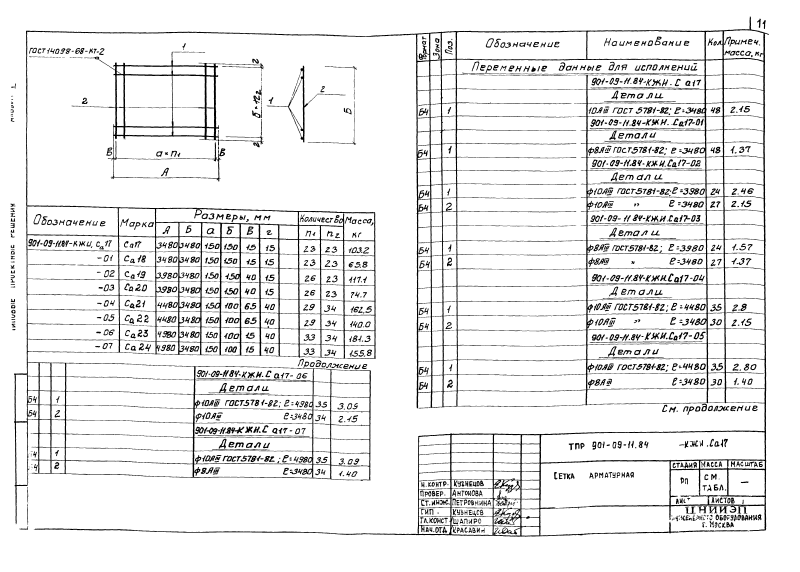 11
ГОСТ 14098-68-КТ-2
1
2
1
2
г
Б=п₂
г
Б
Б
а=п₁
Б
А
Обозначение Марка Размеры, мм Количество Масса, кг
А Б а Б В г п₁ п₂
901-09-11.84-КЖИ, Са17 Са17 3480 3480 150 150 15 15 23 23 103.2
-01 Са18 3480 3480 150 150 15 15 23 23 65.8
-02 Са19 3980 3480 150 150 40 15 26 23 117.1
-03 Са20 3980 3480 150 150 40 15 26 23 74.7
-04 Са21 4480 3480 150 100 65 40 29 34 162.5
-05 Са22 4480 3480 150 100 65 40 29 34 140.0
-06 Са23 4980 3480 150 100 15 40 33 34 181.3
-07 Са24 4980 3480 150 100 15 40 33 34 155.8
Продолжение
901-09-11.84-КЖИ.Са17-06
Детали
Б4 1 ф10АIII ГОСТ 5781-82; ℓ=4980 35 3.09
Б4 2 ф10АIII ℓ=3480 34 2.15
901-09-11.84-КЖИ.Са17-07
Детали
1 ф10АIII ГОСТ 5781-82; ℓ=4980 35 3.09
2 ф8АIII ℓ=3480 34 1.40
Формат Зона Поз. Обозначение Наименование Кол. Примеч. масса, кг
Переменные данные для исполнений
901-09-11.84-КЖИ.Са17
Детали
Б4 1 10АIII ГОСТ 5781-82; ℓ=3480 48 2.15
901-09-11.84-КЖИ.Са17-01
Детали
Б4 1 ф8АIII ГОСТ 5781-82; ℓ=3480 48 1.37
901-09-11.84-КЖИ.Са17-02
Детали
Б4 1 ф10АIII ГОСТ 5781-82; ℓ=3980 24 2.46
Б4 2 ф10АIII " ℓ=3480 27 2.15
901-09-11.84-КЖИ.Са17-03
Детали
Б4 1 ф8АIII ГОСТ 5781-82; ℓ=3980 24 1.57
Б4 2 ф8АIII " ℓ=3480 27 1.37
901-09-11.84-КЖИ.Са17-04
Детали
Б4 1 ф10АIII ГОСТ 5781-82; ℓ=4480 35 2.8
Б4 2 ф10АIII " ℓ=3480 30 2.15
901-09-11.84-КЖИ.Са17-05
Детали
Б4 1 ф10АIII ГОСТ 5781-82; ℓ=4480 35 2.80
Б4 2 ф8АIII ℓ=3480 30 1.40
См. продолжение
ТПР 901-09-11.84 -КЖИ.Са17
Сетка арматурная
Стадия Масса Масштаб
РП См. табл. —
Лист Листов 1
ЦНИИЭП
инженерного оборудования
г. Москва
Н.контр. Кузнецов
Провер. Антонова
Ст.инж. Петровнина
ГИП Кузнецов
Гл.конст Шапиро
Нач.отд. Красавин